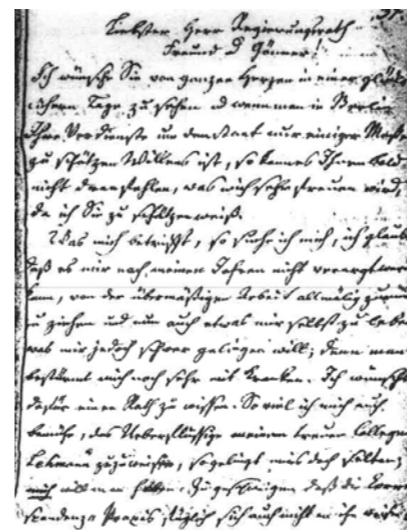 37.
Liebster Herr Regierungsrath
Freund & Gönner!
Ich wünsche Sie von ganzen Herzen in einer glück-
lichern Lage zu sehen u wenn man in Berlin
Ihre Verdienste um den Staat nur einiger Maßen
zu schätzen Willens ist, so kann es Ihnen bald
nicht daran fehlen, was mich sehr freuen wird,
da ich Sie zu schätzen weiß.
Was mich betrifft, so suche ich mich, ich glaube
daß es mir nach meinen Jahren nicht verargt werden
kann, von der übermäßigen Arbeit allmälig zurück
zu ziehen und nun auch etwas mir selbst zu leben
was mir jedoch schwer gelingen will; denn man
bestürmt mich noch sehr mit Kranken. Ich wünschte
dafür einen Rath zu wissen. So viel ich mich auch
bemühe, das Ueberflüssige meinem treuen Collegen
Lehmann zuzuweisen, so gelingt mirs doch selten;
mich will man haben. Zu geschweigen daß die Corre-
spondenz-Praxis sich auch nicht an ihn weisen